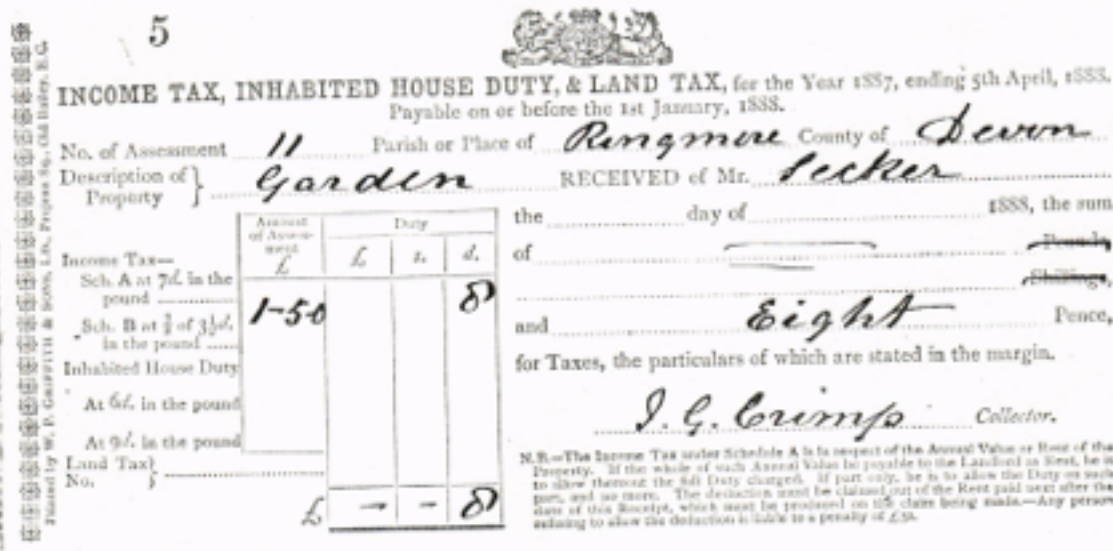 5
INCOME TAX, INHABITED HOUSE DUTY, & LAND TAX, for the Year 1887, ending 5th April, 1888.
Payable on or before the 1st January, 1888.
No. of Assessment 11 Parish or Place of Ringmore County of Devon
Description of Property } Garden RECEIVED of Mr. Secker
the day of 1888, the sum
of Pounds,
Shillings,
and Eight Pence,
for Taxes, the particulars of which are stated in the margin.
J. G. Crimp Collector.
Amount of Assessment £
Duty
£ s. d.
Income Tax—
Sch. A at 7d. in the
pound 1-50 8
Sch. B at of 3½d.
in the pound
Inhabited House Duty
At 6d. in the pound
At 9d. in the pound
Land Tax }
No.
£ - - 8
N.B.—The Income Tax under Schedule A is in respect of the Annual Value or Rent of the
Property. If the whole of such Annual Value be payable to the Landlord as Rent, he is
to allow thereout the full Duty charged. If part only, he is to allow the Duty on such
part, and no more. The deduction must be claimed out of the Rent paid next after the
date of this Receipt, which must be produced on the claim being made.—Any person
refusing to allow the deduction is liable to a penalty of £50.
Printed by W. P. GRIFFITH & SONS, LD., Prujean Sq., Old Bailey, E.C.